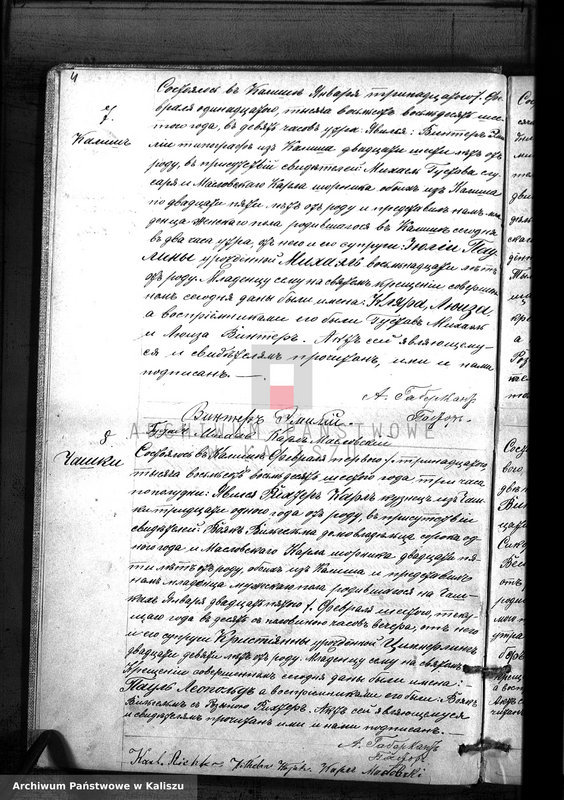 4
7
Калишъ
Состоялось въ Калишѣ Января тринадцатого /Фе-
враля одинадцатаго, тысяча восемьсотъ восемьдесятъ шес-
таго года, въ девять часовъ утра. Явился: Винтеръ Эми-
лій типографъ изъ Калиша двадцати шести лѣтъ отъ
роду, въ присутствіи свидѣтелей Михаель Густава слѣ-
саря и Масловскаго Карла шорника обоихъ изъ Калиша
по двадцати пяти лѣтъ отъ роду и предъявилъ намъ мла-
денца женскаго пола родившагося въ Калишѣ сегодня
въ два часа утра, отъ него и его супруги Юліи Пау-
лины урожденной Михаель восемьнадцати лѣтъ
отъ роду. Младенцу сему на святомъ крещеніи совершен-
номъ сегодня даны были имена: Клара, Луиза
а воспріемниками его были Густавъ Михаель
и Луиза Винтеръ. Актъ сей являющему-
ся и свидѣтелямъ прочитанъ, ими и нами
подписанъ. —
А. Габеркантъ
Пасторъ.
Винтеръ Эмилій
Карлъ Масловскій
ARCHIWUM PAŃSTWOWE
8
Чашки
Состоялось въ Калишѣ Февраля перваго /тринадцатаго,
тысяча восемьсотъ восемьдесятъ шестаго года три часа
пополудни: Явился Рихтеръ Карлъ кузнецъ изъ Ча-
тридцати одного года отъ роду, въ присутствіи
свидѣтелей: домовладѣльца сорока од-
ного года и Масловскаго Карла шорника двадцати пя-
ти лѣтъ отъ роду, обоихъ изъ Калиша и предъявилъ
намъ младенца мужскаго пола родившагося на Чаш-
кахъ Января двадцать пятаго /Февраля шестаго, теку-
щаго года въ десять съ половиною часовъ вечера, отъ него
и его супруги Кристіанны урожденной
двадцати девяти лѣтъ отъ роду. Младенцу сему на святомъ
Крещеніи совершенномъ сегодня даны были имена: —
Пауль Леопольдъ а воспріемниками его были:
Рихтеръ. Актъ сей являющемуся
и свидѣтелямъ прочитанъ ими и нами подписанъ. —
А. Габеркантъ
Пасторъ
Karl Richter
Archiwum Państwowe w Kaliszu